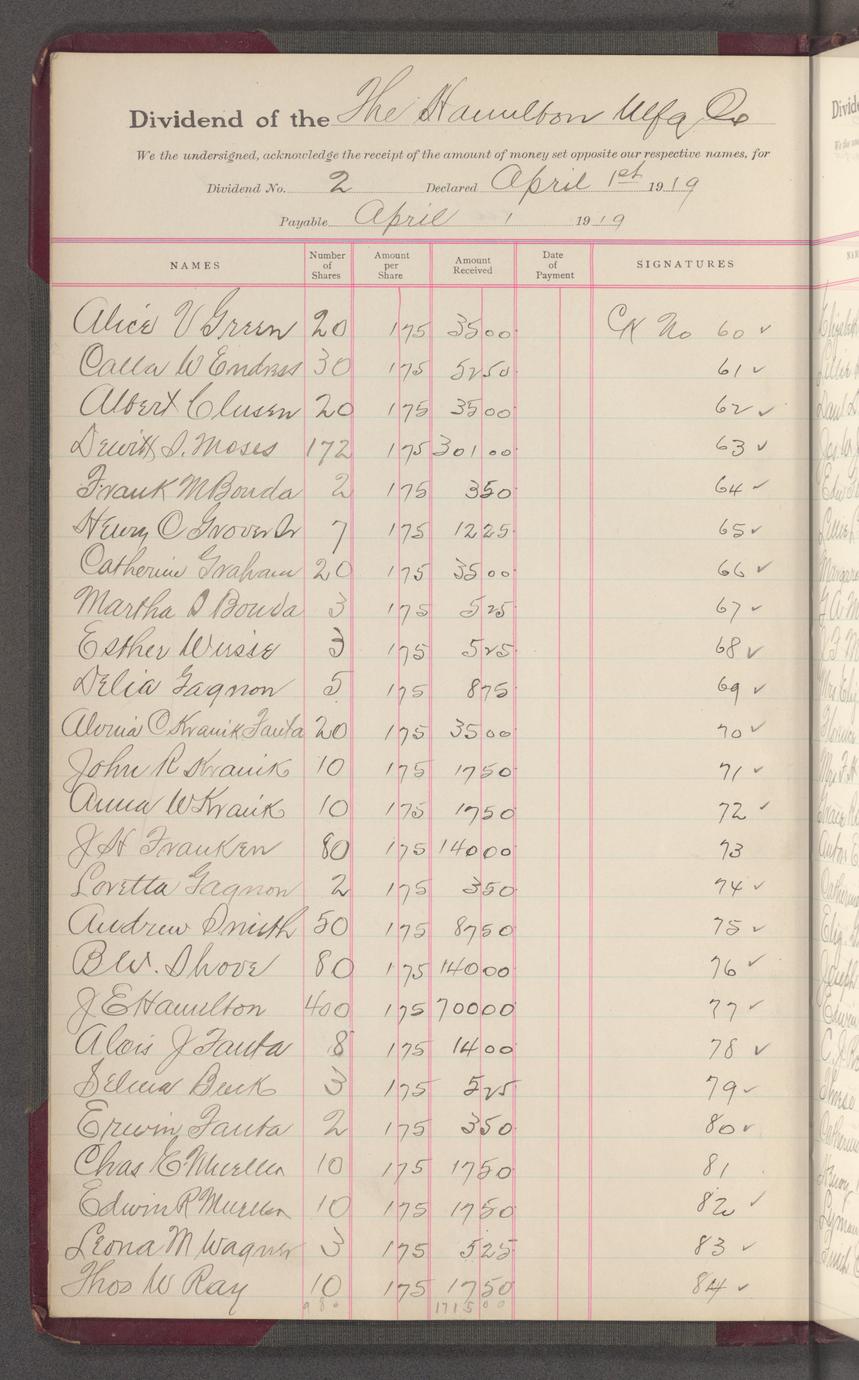 Dividend of the The Hamilton Mfg Co
We the undersigned, acknowledge the receipt of the amount of money set opposite our respective names, for
Dividend No. 2 Declared April 1st 1919
Payable April 1 1919
NAMES Number of Shares Amount per Share Amount Received Date of Payment SIGNATURES
Alice V Green 20 1 75 35 00 CK No 60 ✓
Calla W Endress 30 1 75 52 50 61 ✓
Albert Clusen 20 1 75 35 00 62 ✓
Dewitt S. Moses 172 1 75 301 00 63 ✓
Frank M Bouda 2 1 75 3 50 64 ✓
Henry C Grover Jr 7 1 75 12 25 65 ✓
Catherine Graham 20 1 75 35 00 66 ✓
Martha B Bouda 3 1 75 5 25 67 ✓
Esther 3 1 75 5 25 68 ✓
Delia Gagnon 5 1 75 8 75 69 ✓
C Kranik Fanta 20 1 75 35 00 70 ✓
John R Kranik 10 1 75 17 50 71 ✓
Anna W Kranik 10 1 75 17 50 72 ✓
J H Franken 80 1 75 140 00 73
Loretta Gagnon 2 1 75 3 50 74 ✓
Andrew Smith 50 1 75 87 50 75 ✓
B W. Shove 80 1 75 140 00 76 ✓
J E Hamilton 400 1 75 700 00 77 ✓
Alois J Fanta 8 1 75 14 00 78 ✓
Selma Beck 3 1 75 5 25 79 ✓
Erwin Fanta 2 1 75 3 50 80 ✓
Chas E Mueller 10 1 75 17 50 81
Edwin R Mueller 10 1 75 17 50 82 ✓
Leona M Wagner 3 1 75 5 25 83 ✓
Thos W Ray 10 1 75 17 50 84 ✓
980 1715 00